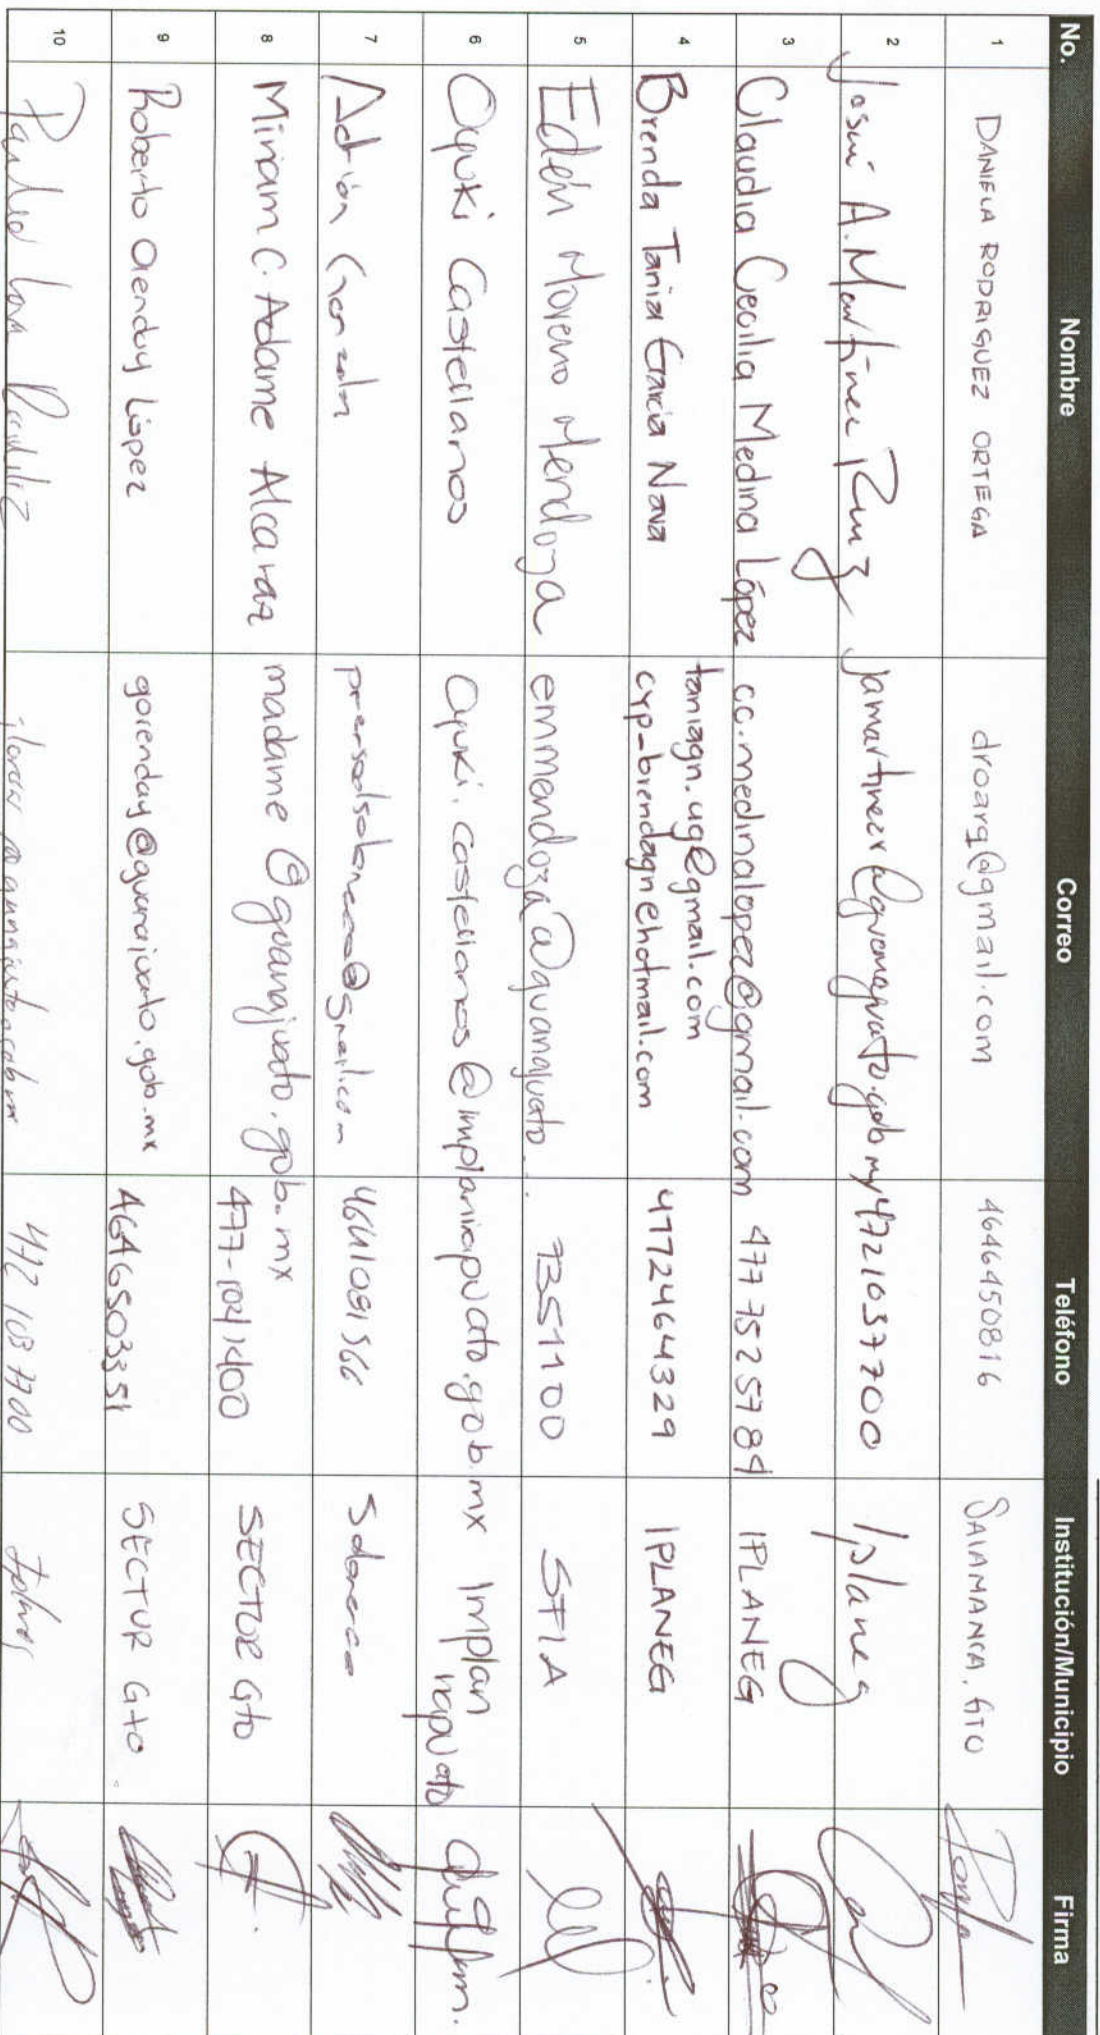 No. Nombre Correo Teléfono Institución/Municipio Firma
1 DANIELA RODRIGUEZ ORTEGA droarq@gmail.com 4646450816 SALAMANCA, GTO
2 Josué A. Martínez Ruiz jamartinezr@guanajuato.gob.mx 4721037700 Iplaneg
3 Claudia Cecilia Medina López cc.medinalopez@gmail.com 477 7525789 IPLANEG
4 Brenda Tania García Nava taniagn.ug@gmail.com
cyp-brendagn@hotmail.com 4772464329 IPLANEG
5 Edén Moreno Mendoza emmendoza@guanajuato.. 7351100 STIA
6 Oyuki Castellanos Oyuki.castellanos@implanirapuato.gob.mx Implan
Irapuato
7 Adrián 4641081566 Salamanca
8 Miriam C. Adame Alcaraz madame@guanajuato.gob.mx 477-1041400 SECTUR Gto
9 Roberto Orenday López gorenday@guanajuato.gob.mx 4646503351 SECTUR Gto.
10 412 103 7700